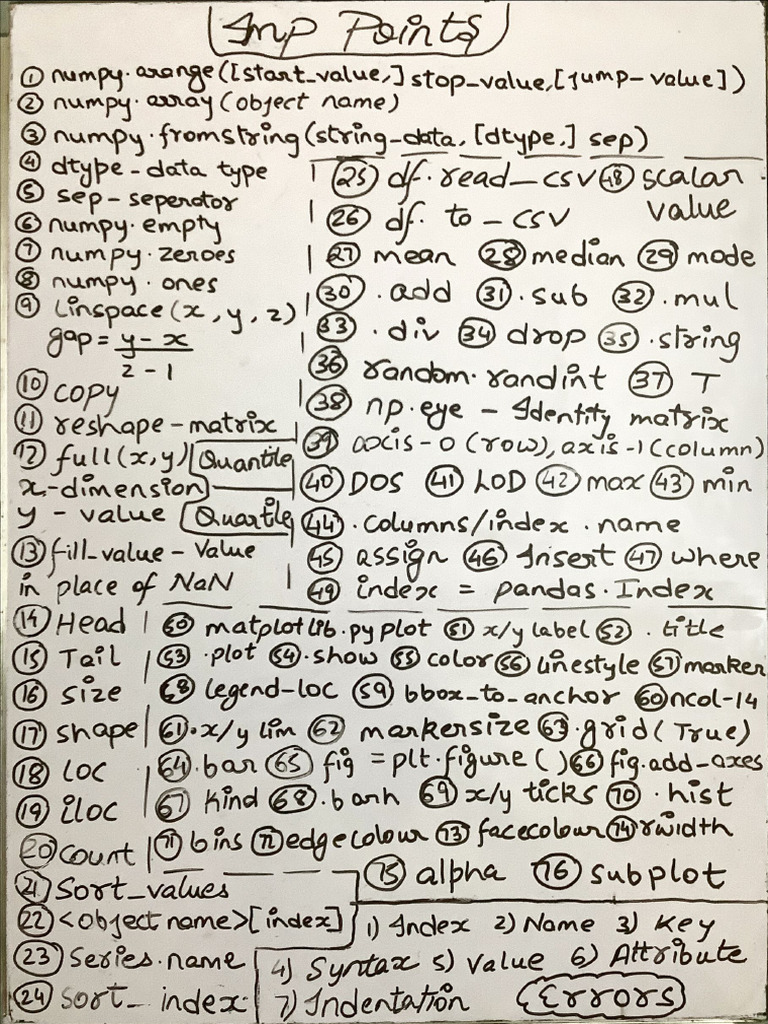 Imp Points
① numpy.arange([start_value,] stop_value,[jump-value])
② numpy.array(object name)
③ numpy.fromstring(string-data, [dtype,] sep)
④ dtype-data type
⑤ sep-seperator
⑥ numpy.empty
⑦ numpy.zeroes
⑧ numpy.ones
⑨ linspace(x,y,z)
gap = y-x
z-1
⑩ copy
⑪ reshape-matrix
⑫ full(x,y) Quantile
x-dimension
y - value Quartile
⑬ fill_value - Value
in place of NaN
⑭ Head
⑮ Tail
⑯ size
⑰ shape
⑱ loc
⑲ iloc
⑳ count
㉑ Sort_values
㉒ <object name>[index]
㉓ Series.name
㉔ sort_index
㉕ df.read_csv ㊽ scalar
value
㉖ df. to_csv
㉗ mean ㉘ median ㉙ mode
㉚ .add ㉛ .sub ㉜ .mul
㉝ .div ㉞ drop ㉟ .string
㊱ random.randint ㊲ T
㊳ np.eye - Identity matrix
㊴ axis-0 (row), axis-1 (column)
㊵ DOS ㊶ LOD ㊷ max ㊸ min
㊹ .columns/index .name
㊺ assign ㊻ Insert ㊼ where
㊾ index = pandas.Index
㊿ matplotlib.pyplot (51) x/y label (52) .title
(53) .plot (54) .show (55) color (56) linestyle (57) marker
(58) legend-loc (59) bbox_to_anchor (60) ncol-14
(61) .x/y lim (62) markersize (63) .grid(True)
(64) .bar (65) fig = plt.figure() (66) fig.add-axes
(67) Kind (68) .barh (69) x/y ticks (70) .hist
(71) bins (72) edgecolour (73) facecolour (74) rwidth
(75) alpha (76) subplot
1) Index 2) Name 3) Key
4) Syntax 5) Value 6) Attribute
7) Indentation Errors